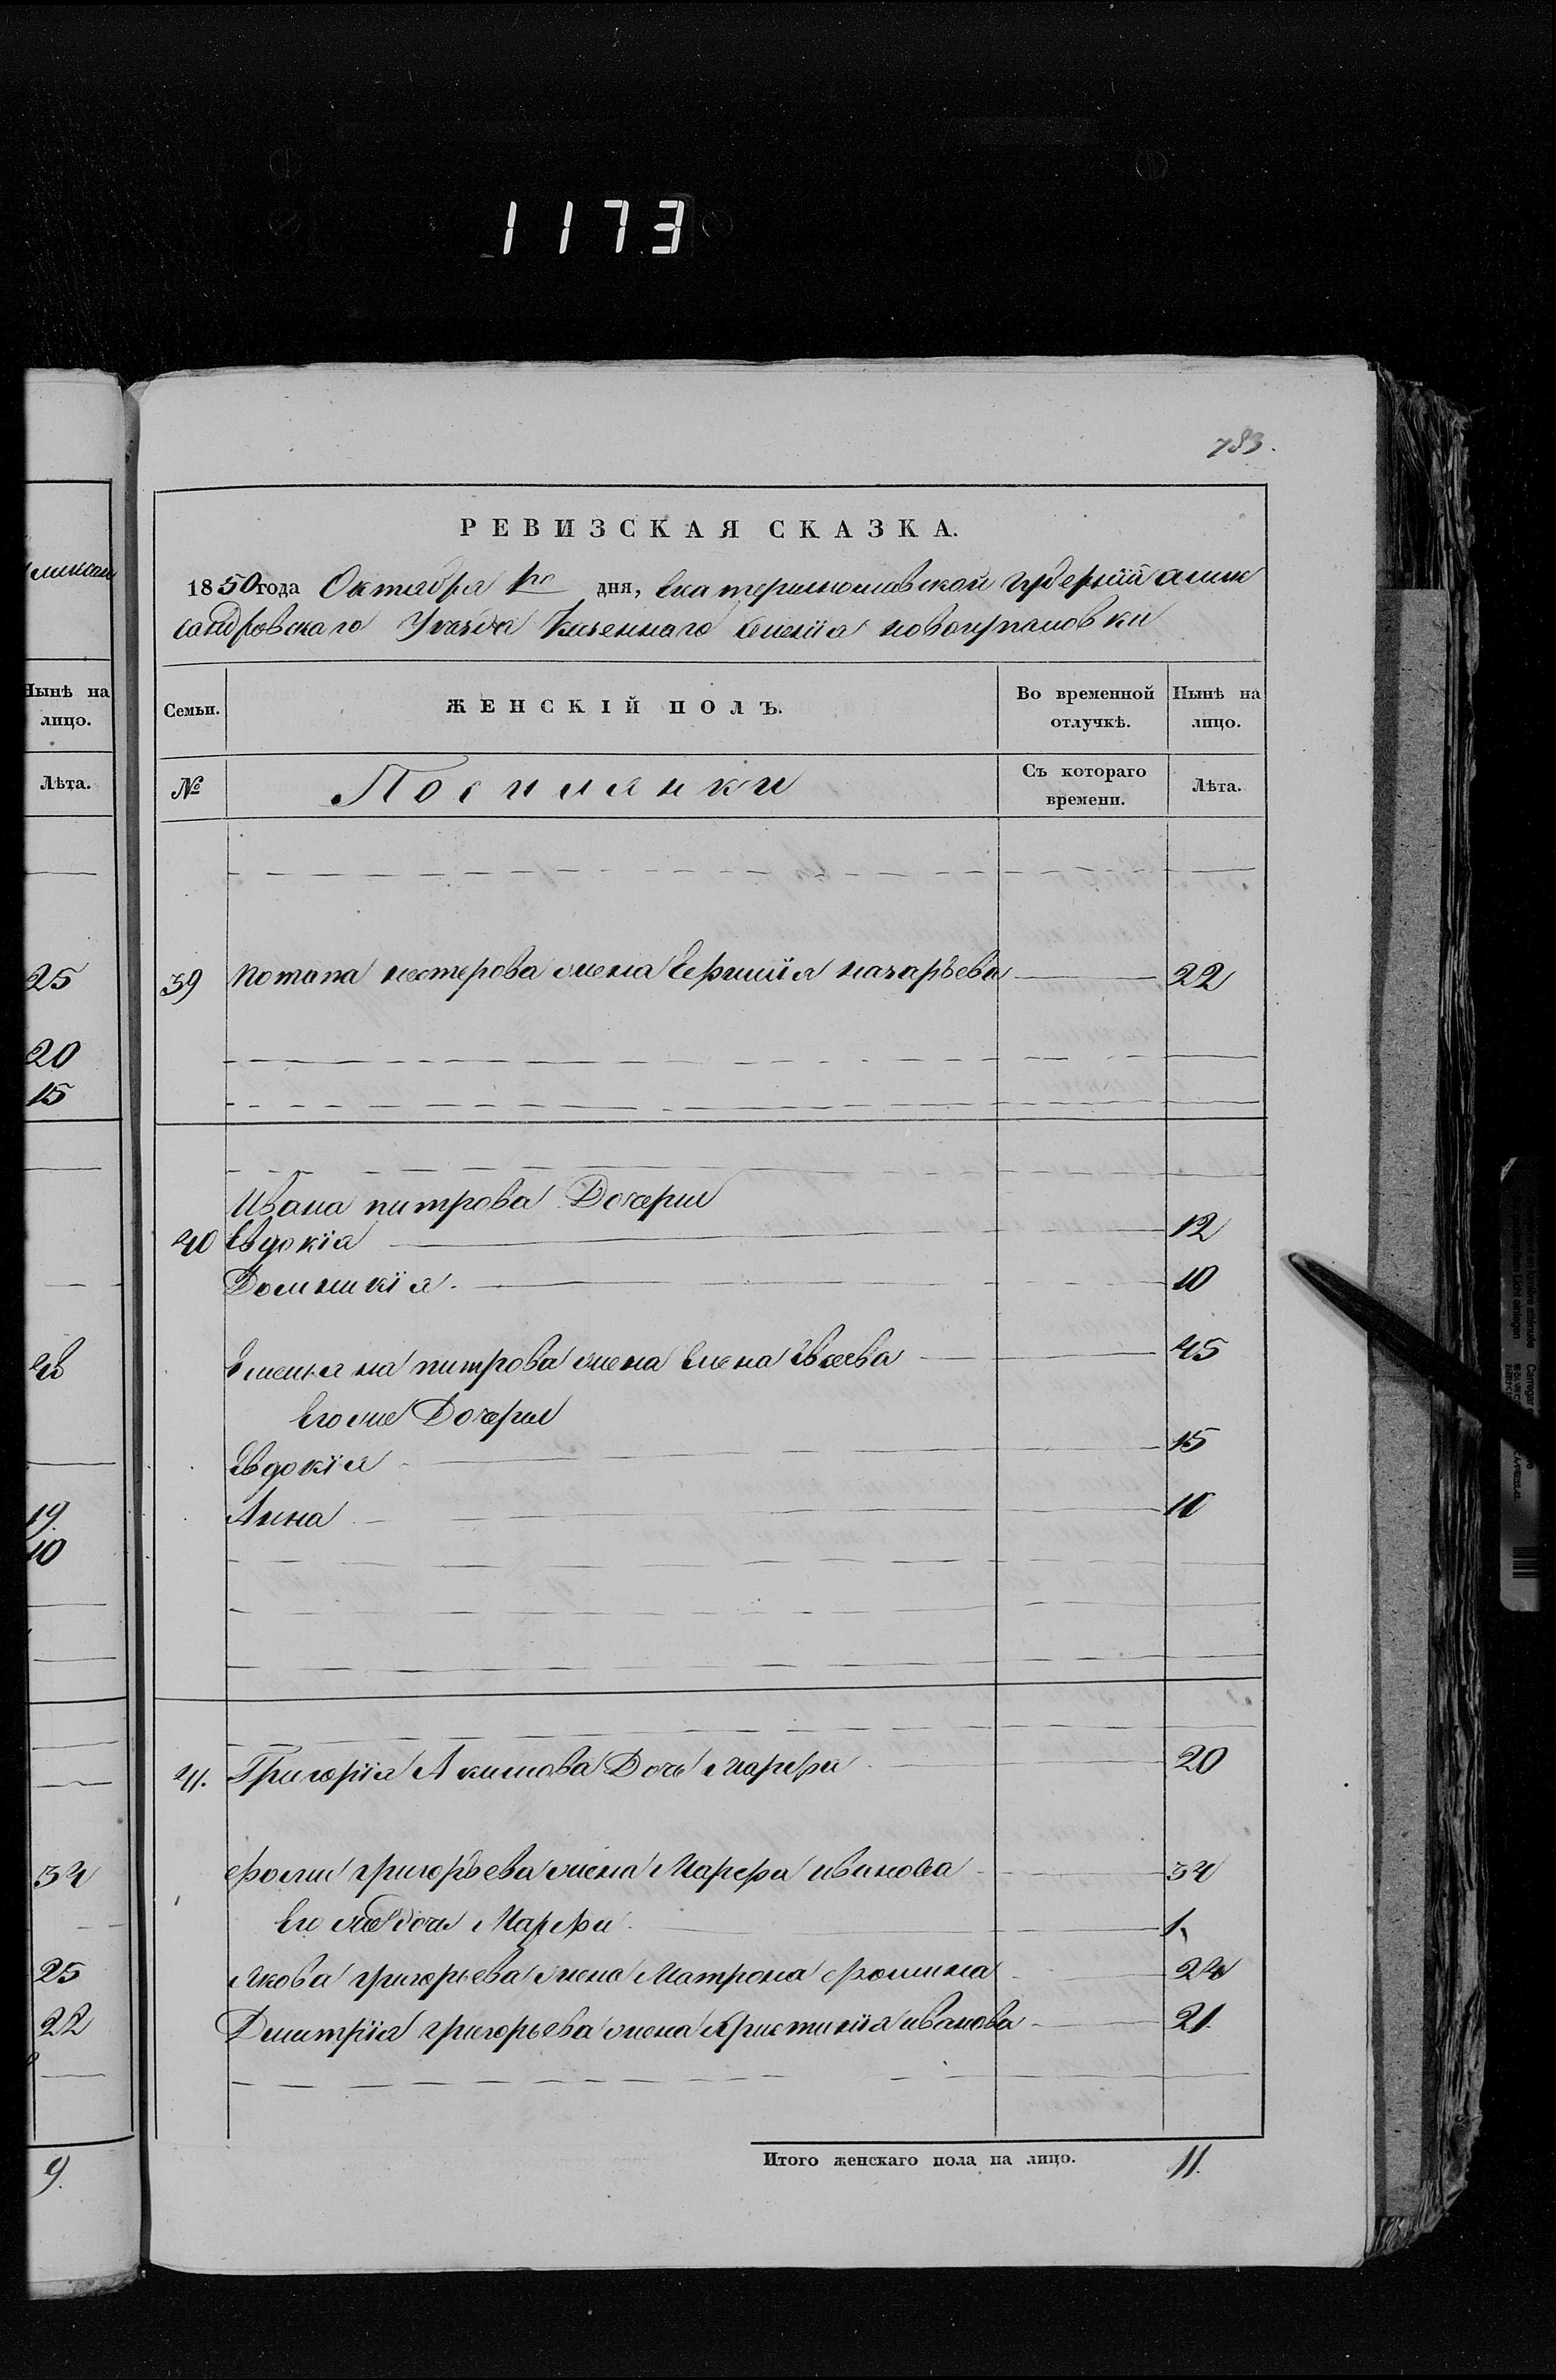 1173
783.
РЕВИЗСКАЯ СКАЗКА.
1850 года Октября 1го дня, Екатеринославской губерній алек
сандровского Уезда Казеннаго селенія
Семьи. ЖЕНСКІЙ ПОЛЪ. Во временной отлучкѣ. Нынѣ на лицо.
№ Поселянки Съ котораго времени. Лѣта.
39 Потапа нестерова жена Ефимія назарьева 22
Ивана питрова Дочери
40 Евдокія 12
Домникія 10
Емельяна питрова жена Елена Евсеева 45
Его же Дочери
Евдокія 15
Анна 10
41. Григорія Акимова Дочь марфа 20
фомы григорьева жена Марфа иванова 34
Его же дочь Марфа 1
якова григорьева жена Матрона фомина 24
Дмитрія григорьева жена Христинія иванова 21
Итого женскаго пола на лицо. 11.
Нынѣ на
лицо.
Лѣта.
25
20
15
19
10
34
25
22
9.